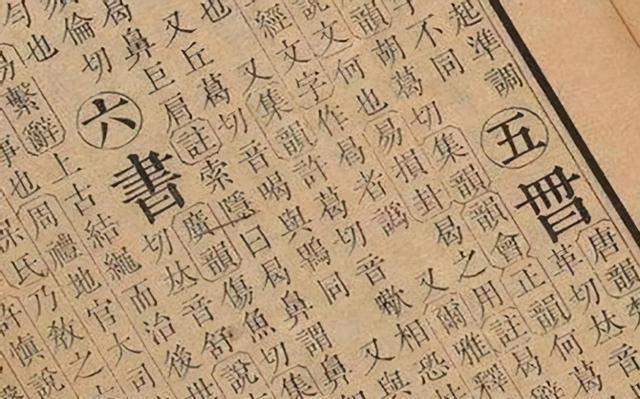 起準調
不同
五
唐韻
革切𠀤音
韻胡葛切集韻韻會正韻何
說文何也易損卦曷之用註曷
經文字作曷者譌 又爾雅釋
又集韻許葛切音歇 相恐
也 又丘葛切音喝與鶡同 又與
曷鼻巨肩註索隱曰曷鼻謂鼻
倫切
也
六
書
廣韻傷魚切集
切𠀤音舒說
易繫辭上古結繩而治後世
事也周禮地官大司
保氏乃敎之
許愼說